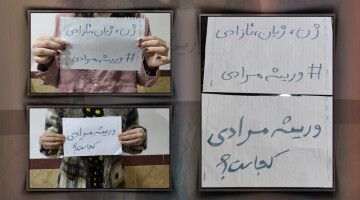 ژن، ژیان، ئازادی
#وریشه مرادی
وریشه مرادی
کجاست؟
ژن، ژیان، ئازادی
#وریشه مرادی
وریشه مرادی
کجاست؟